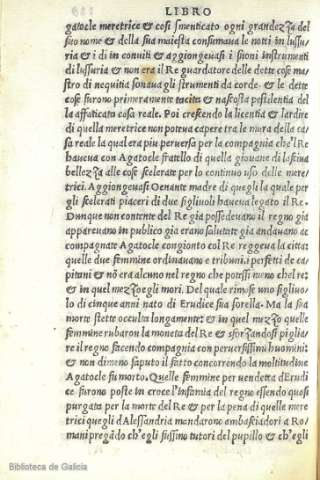 LIBRO
gatocle meretrice & cosi smenticato ogni grandezza del
suo nome & della sua maiesta consumaua le notti in lussu
ria & i di in conuiti & aggiongeuasi i suoni instrumenti
di lussuria & non era il Re guardatore delle dette cose ma
stro di nequitia sonaua gli strumenti da corde. & le dette
cose furono primeramente tacita & nascosta pestilentia del
la affaticata cosa reale. Poi crescendo la licentia & lardire
di quella meretrice non poteua capere tra le mura della ca
sa reale la qual era piu peruersa per la compagnia che'l Re
haueua con Agatocle fratello di quella giouane di lasciua
bellezza alle cose scelerate per lo continuo uso delle mere
trici. Aggiongeuasi Oenante madre di quegli la quale per
gli scelerati piaceri di due figliuoli haueua legato il Re.
Dunque non contente del Re gia possedeuano il regno gia
appareuano in publico gia erano salutate gia andauano ac
compagnate Agatocle congionto col Re reggeua la citta
quelle due femmine ordinauano e tribuni. i perfetti de ca
pitani & nõ era alcuno nel regno che potessi meno che'l re:
& in quel mezzo egli mori. Del quale rimase uno figliuo
lo di cinque anni nato di Erudice sua sorella. Ma la sua
morte stette occulta longamente: & in quel mezzo quelle
femmine rubaron la moneta del Re & sforzandosi piglia
re il regno facendo compagnia con peruersissimi huomini:
& non dimeno saputo il fatto concorrendo la moltitudine
Agatocle fu morto. Quelle femmine per uendetta d'Erudi
ce furono poste in croce l'infamia del regno essendo quasi
purgata per la morte del Re & per la pena di quelle mere
trici quegli d'Alessandria mandarono ambasciadori a Ro
mani pregãdo ch'egli fussino tutori del pupillo & ch'egli
Biblioteca de Galicia